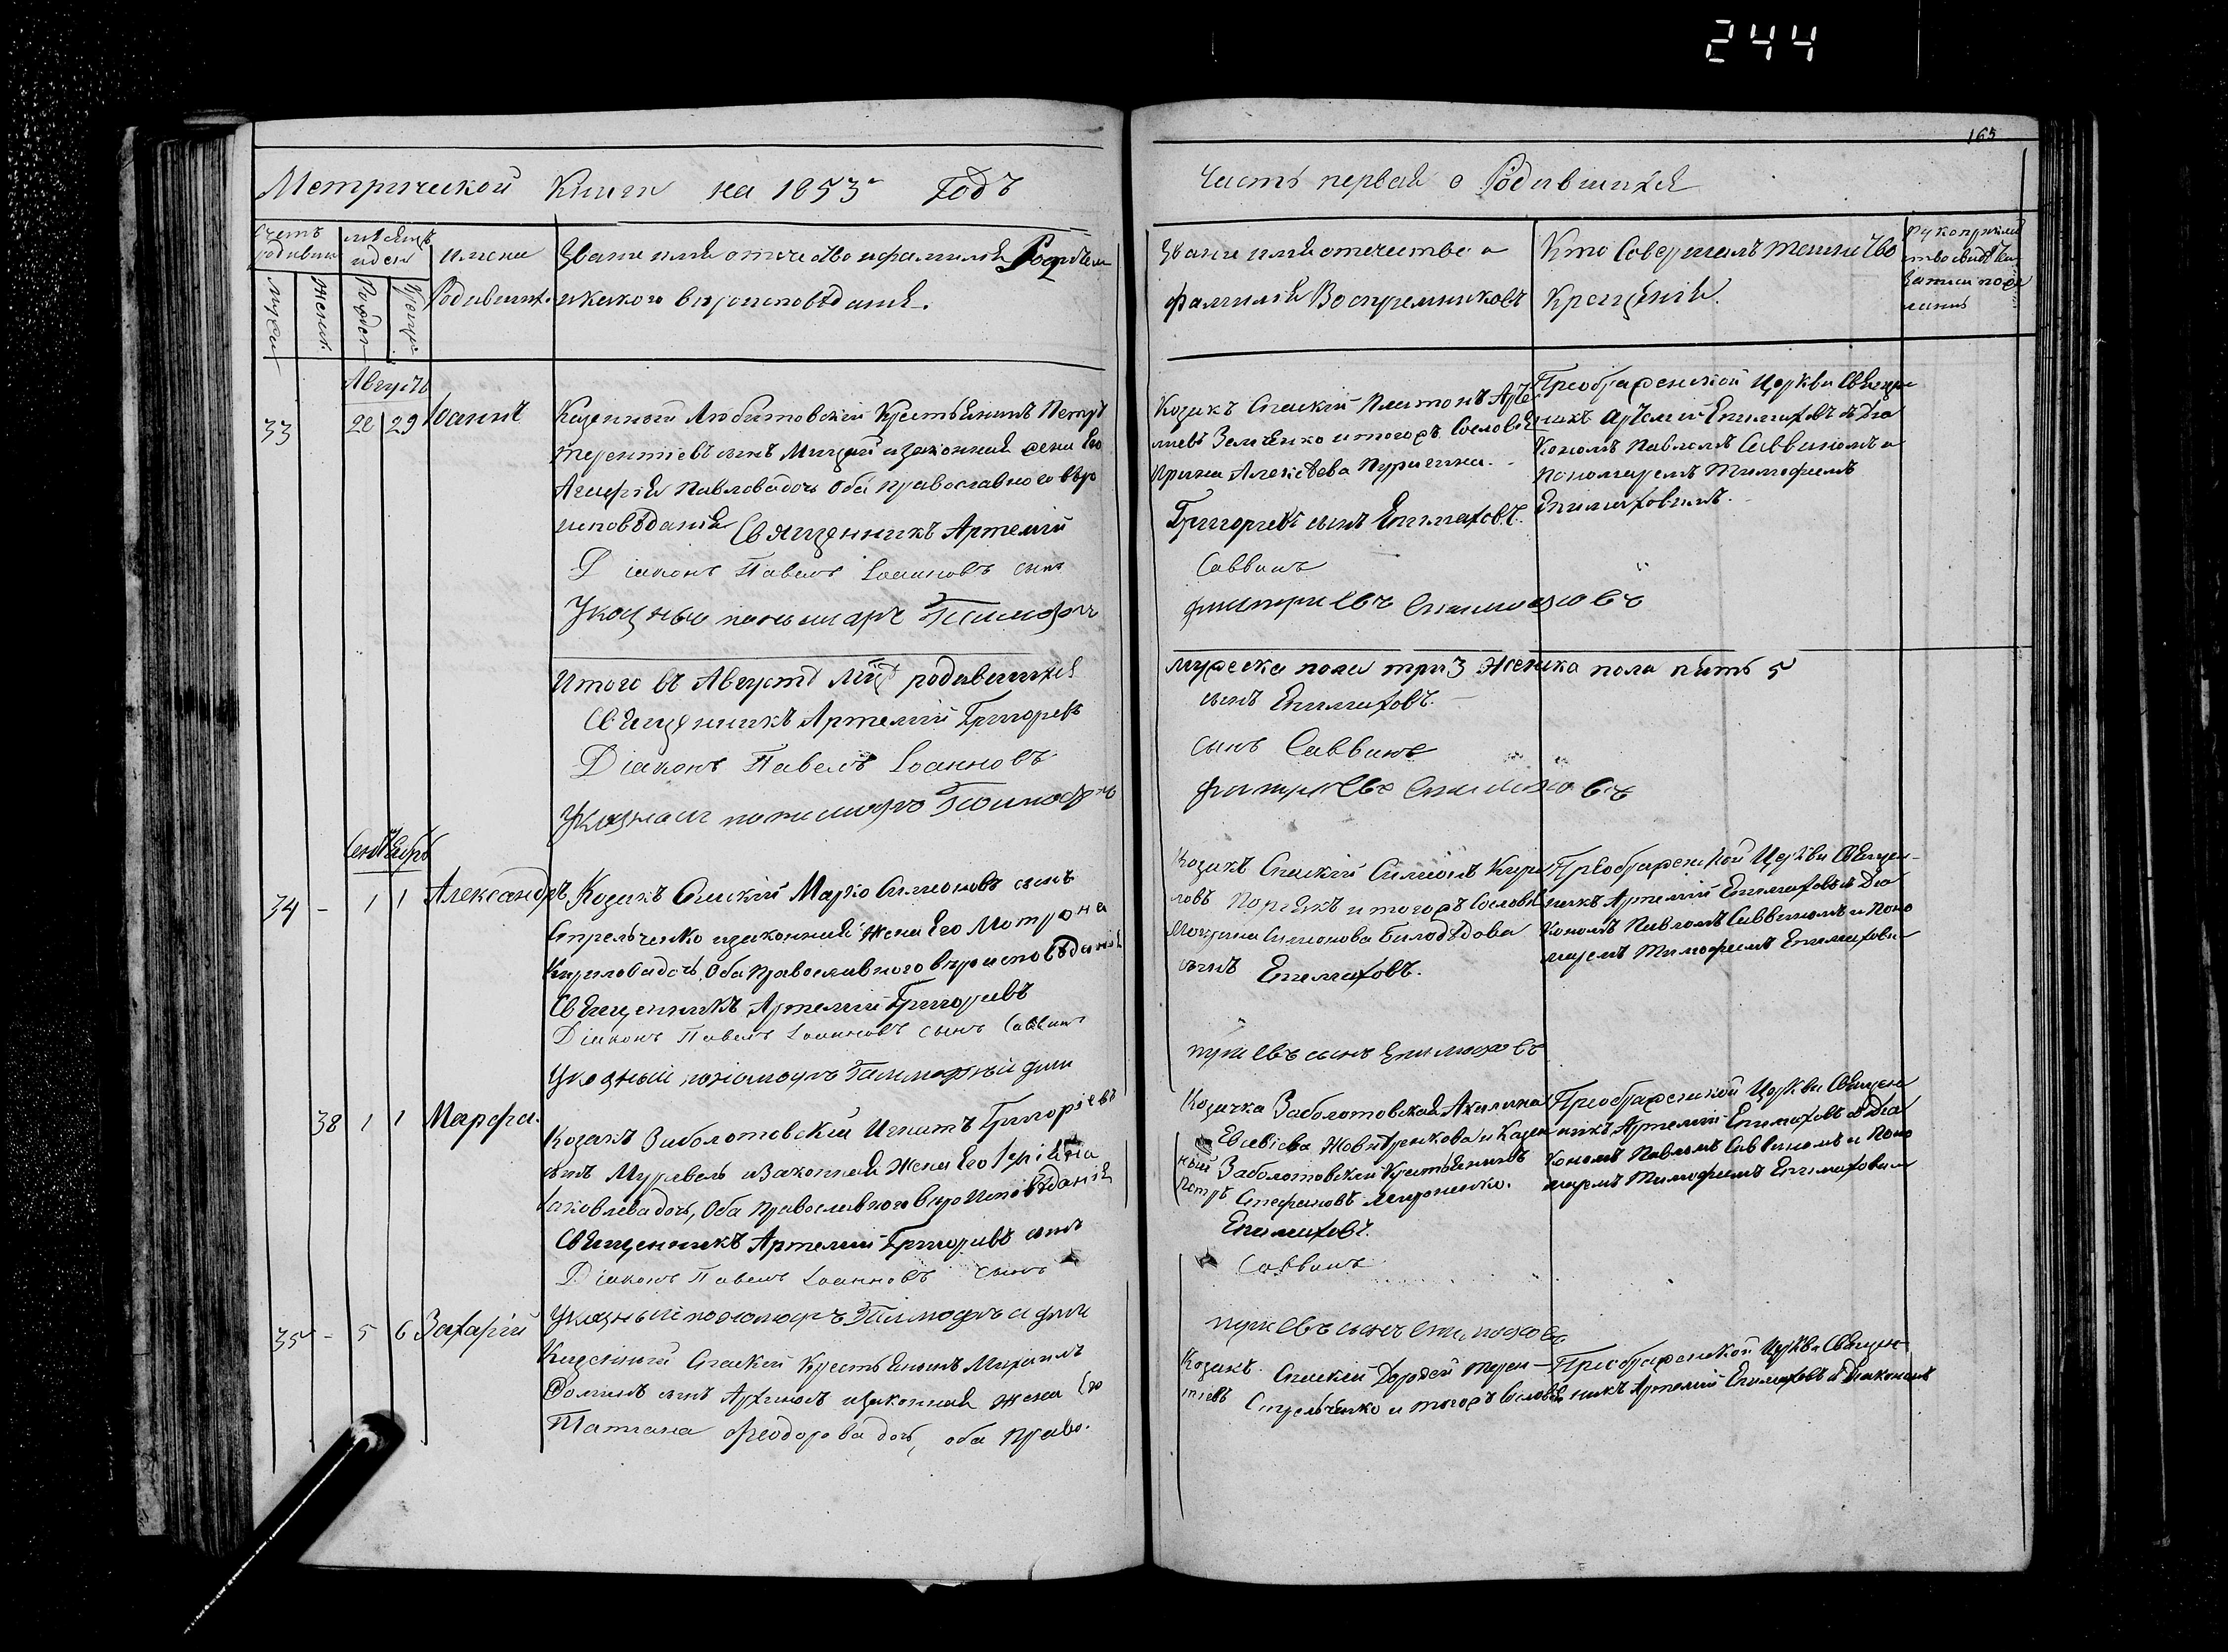 244
165
Метрической Книги на 1853 Годъ
Часть первая о Родившихся
Счетъ родивши
мѣсяцъ и ден
имена Родивших.
Званіе имя отечество и фамилія Родителей
и какого вѣроисповѣданія.
Званіе имя отечество и
фамилія Воспремниковъ
Кто Совершалъ таинство
Крещенія.
рукоприкла
ство свидѣте
записи по же
ланію
мужеск
женск.
Рожден
Крещ
Августъ
33
28 29 Іоаннъ
Казенный Любитовскій Крестьянинъ Петръ
Терентіевъ сынъ Мицай и законная жена Его
Агафія Павлова дочь Оба православного вѣро
исповѣданія Священникъ Артемій
Діаконъ Павелъ Іоанновъ сынъ
Указный пономарь Тимофей
Козакъ Спаскій Платонъ Арте
міевъ Земченко и тогожъ Сословія
Ирина Алексѣева
Григорьевъ сынъ Епимаховъ.
Саввинъ
Дмитріевъ Епимаховъ
Преображенской Церкви Священ
никъ Артемій Епимаховъ съ Діа
кономъ Павломъ Саввиномъ и
пономаремъ Тимофеемъ
Епимаховимъ.
Итого въ Августѣ мцѣ родившихся
мужеска пола три 3 Женска пола пять 5
Священникъ Артемій Григорьевъ
сынъ Епимаховъ.
Діаконъ Павелъ Іоанновъ
сынъ Саввинъ
Указный пономарь Тимофей
Дмитріевъ Епимаховъ
Сентябрь
34 - 1 1 Александръ
Козакъ Спаскій Марко Симоновъ сынъ
Стрельченко и законная жена Его Мотрона
Кирилова дочь, Оба Православного вѣроисповѣданія
Священникъ Артемій Григорьевъ
Діаконъ Павелъ Іоанновъ сынъ Саввинъ
Указный пономарь Тимофей Дми
Козакъ Спаскій Симеонъ Кири
ловъ и тогожъ Сословія
Мокрина Симонова Билодѣдова
сынъ Епимаховъ.
тріевъ сынъ Епимаховъ
Преображенской Церкви Священ-
никъ Артемій Епимаховъ съ Діа
кономъ Павломъ Саввиномъ и Поно
маремъ Тимофеемъ Епимахови
38 1 1 Марфа.
Козакъ Заболотовскій Игнатъ Григоріевъ
сынъ Муравель и Законная Жена Его
Іаковлева дочь, Оба Православного вѣроисповѣданія
Священникъ Артемій Григорьевъ сынъ
Діаконъ Павелъ Іоанновъ сынъ
Указный пономарь Тимофей Дми
Козачка Заболотовская Акилина
Евсевіева и Казен
ный Заболотовскій Крестьянинъ
Петръ Стефановъ Мироненко.
Епимаховъ.
Саввинъ
тріевъ сынъ Епимаховъ
Преображенской Церкви Священ
никъ Артемій Епимаховъ съ Діа
кономъ Павломъ Саввиномъ и Поно
маремъ Тимофеемъ Епимахови
35 - 5 6 Захарій
Казенный Спаскій Крестьянинъ Михаилъ
сынъ и законная жена Его
Татіана Феодорова дочь, оба Право.
Козакъ Спаскій Дорофей Терен-
тіевъ Стрельченко и тогожъ Сословія
Преображенской Церкви Священ
никъ Артемій Епимаховъ съ Діакономъ